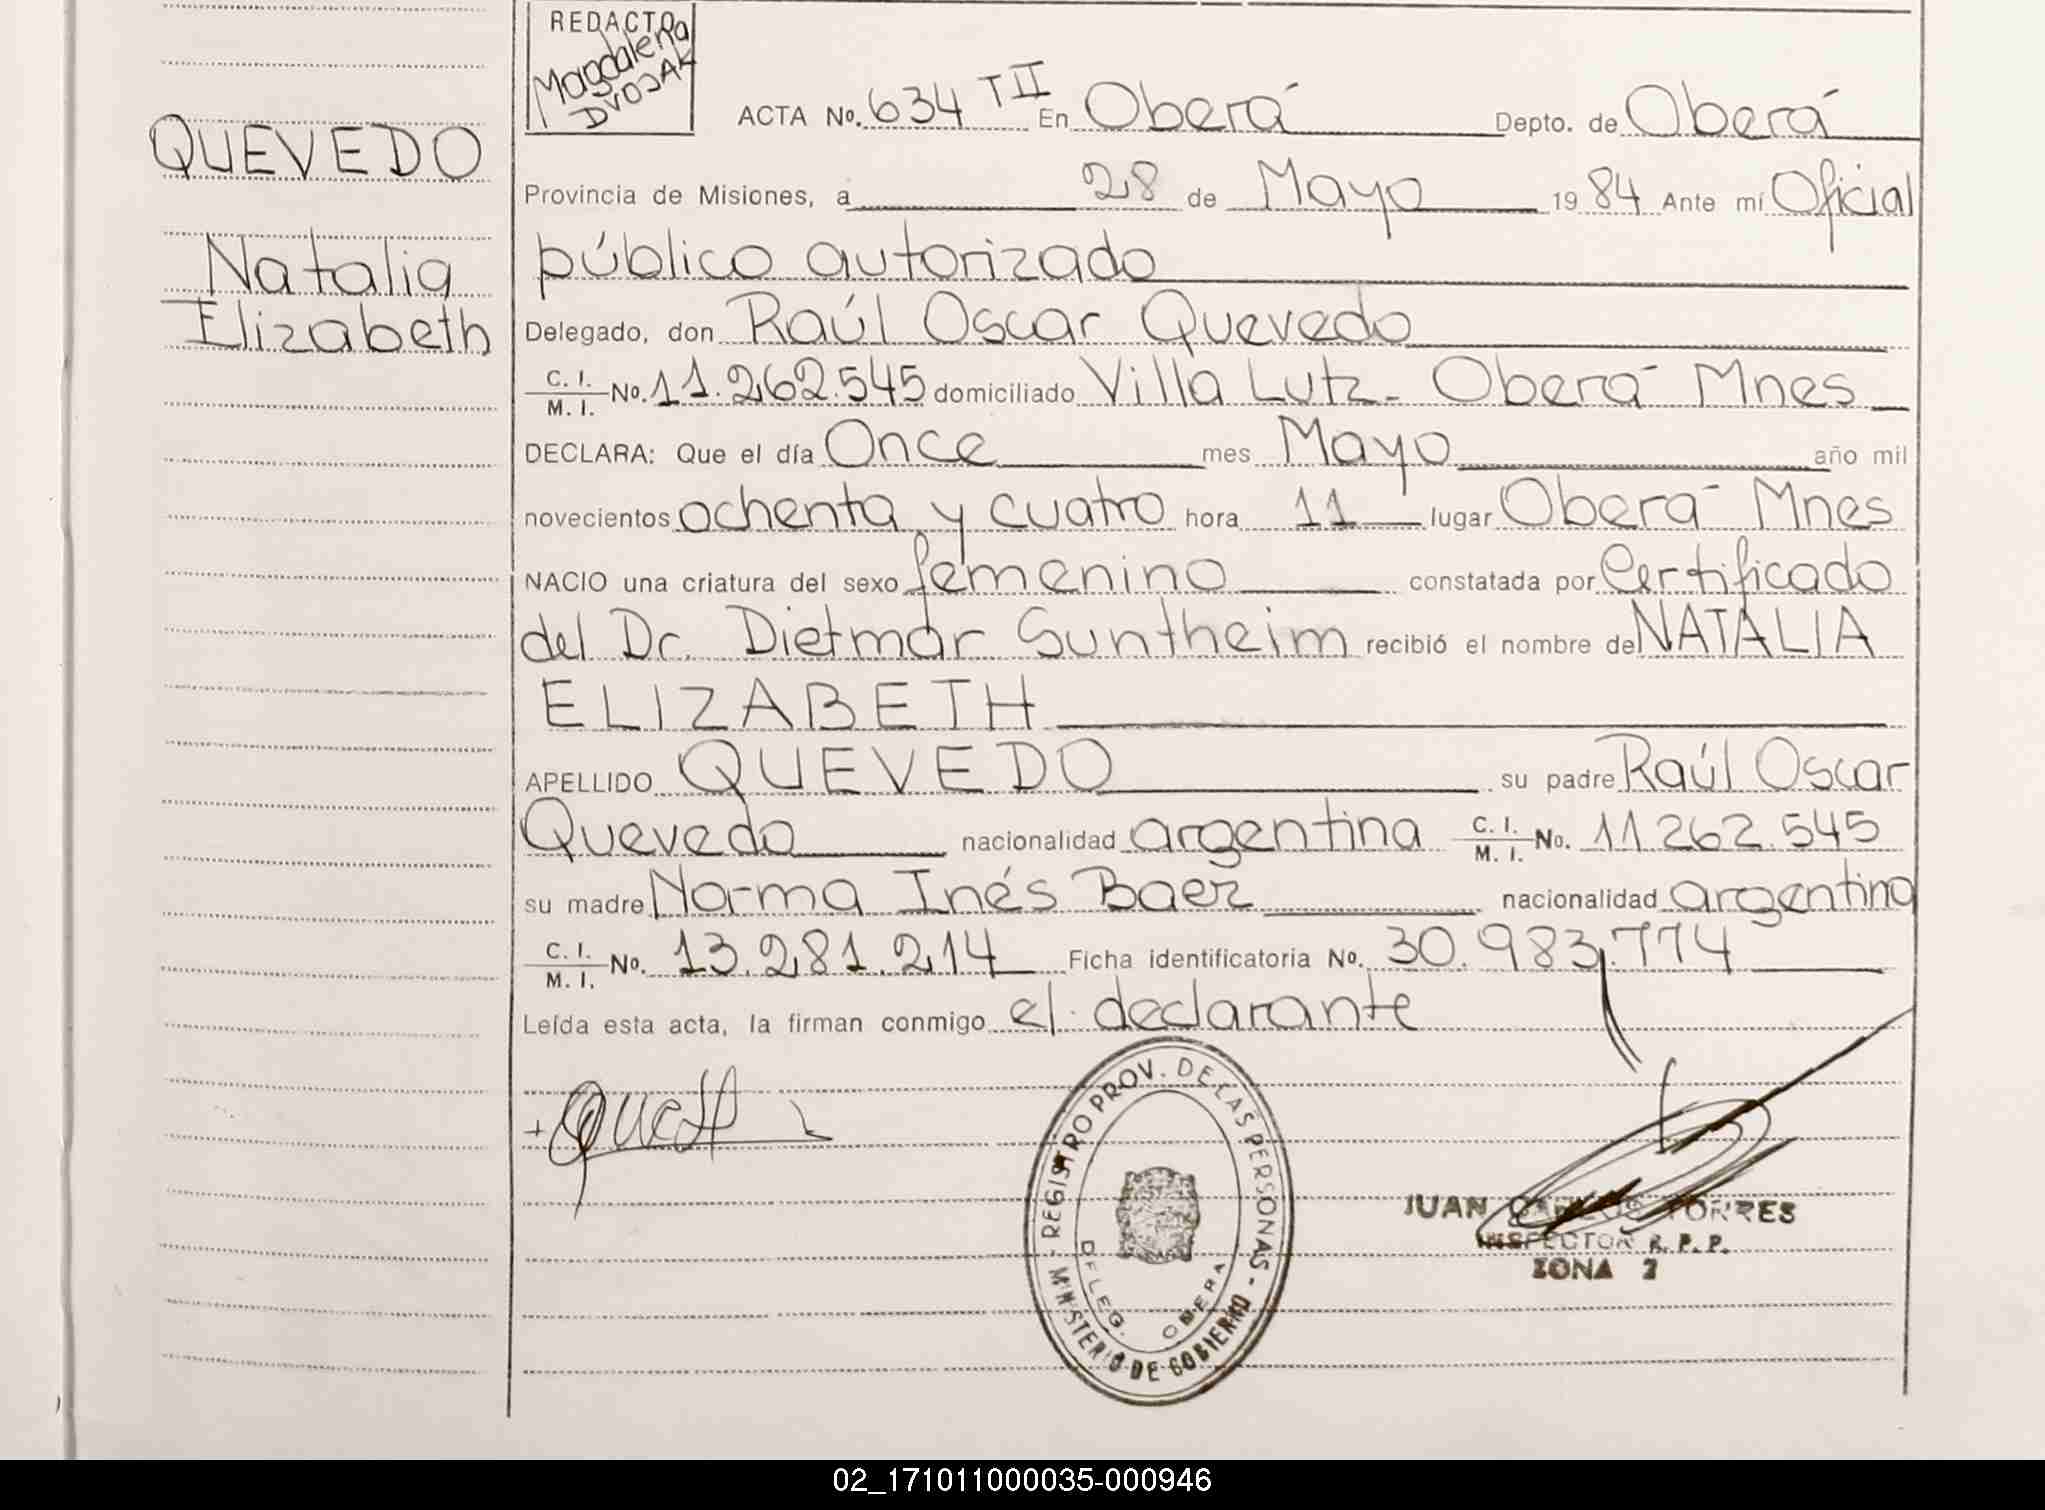 REDACTO
Magdalena
DVOJAK
ACTA No. 634 TII En Oberá Depto. de Oberá
QUEVEDO
Provincia de Misiones, a 28 de Mayo 1984 Ante mí Oficial
Natalia
público autorizado
Elizabeth
Delegado, don Raúl Oscar Quevedo
C. I.
M. I. No. 11.262.545 domiciliado Villa Lutz - Oberá Mnes
DECLARA: Que el día Once mes Mayo año mil
novecientos ochenta y cuatro hora 11 lugar Oberá Mnes
NACIO una criatura del sexo femenino constatada por Certificado
del Dr. Dietmar Suntheim recibió el nombre de NATALIA
ELIZABETH
APELLIDO QUEVEDO su padre Raúl Oscar
Quevedo nacionalidad argentina C. I. M. I. No. 11.262.545
su madre Norma Inés Baez nacionalidad argentina
C. I. M. I. No. 13.281.214 Ficha identificatoria No. 30.983.774
Leída esta acta, la firman conmigo el declarante
REGISTRO PROV. DE LAS PERSONAS - MINISTERIO DE GOBIERNO -
DELEG. OBERA
JUAN CARLOS TORRES
INSPECTOR R. P. P.
ZONA 2
02_171011000035-000946